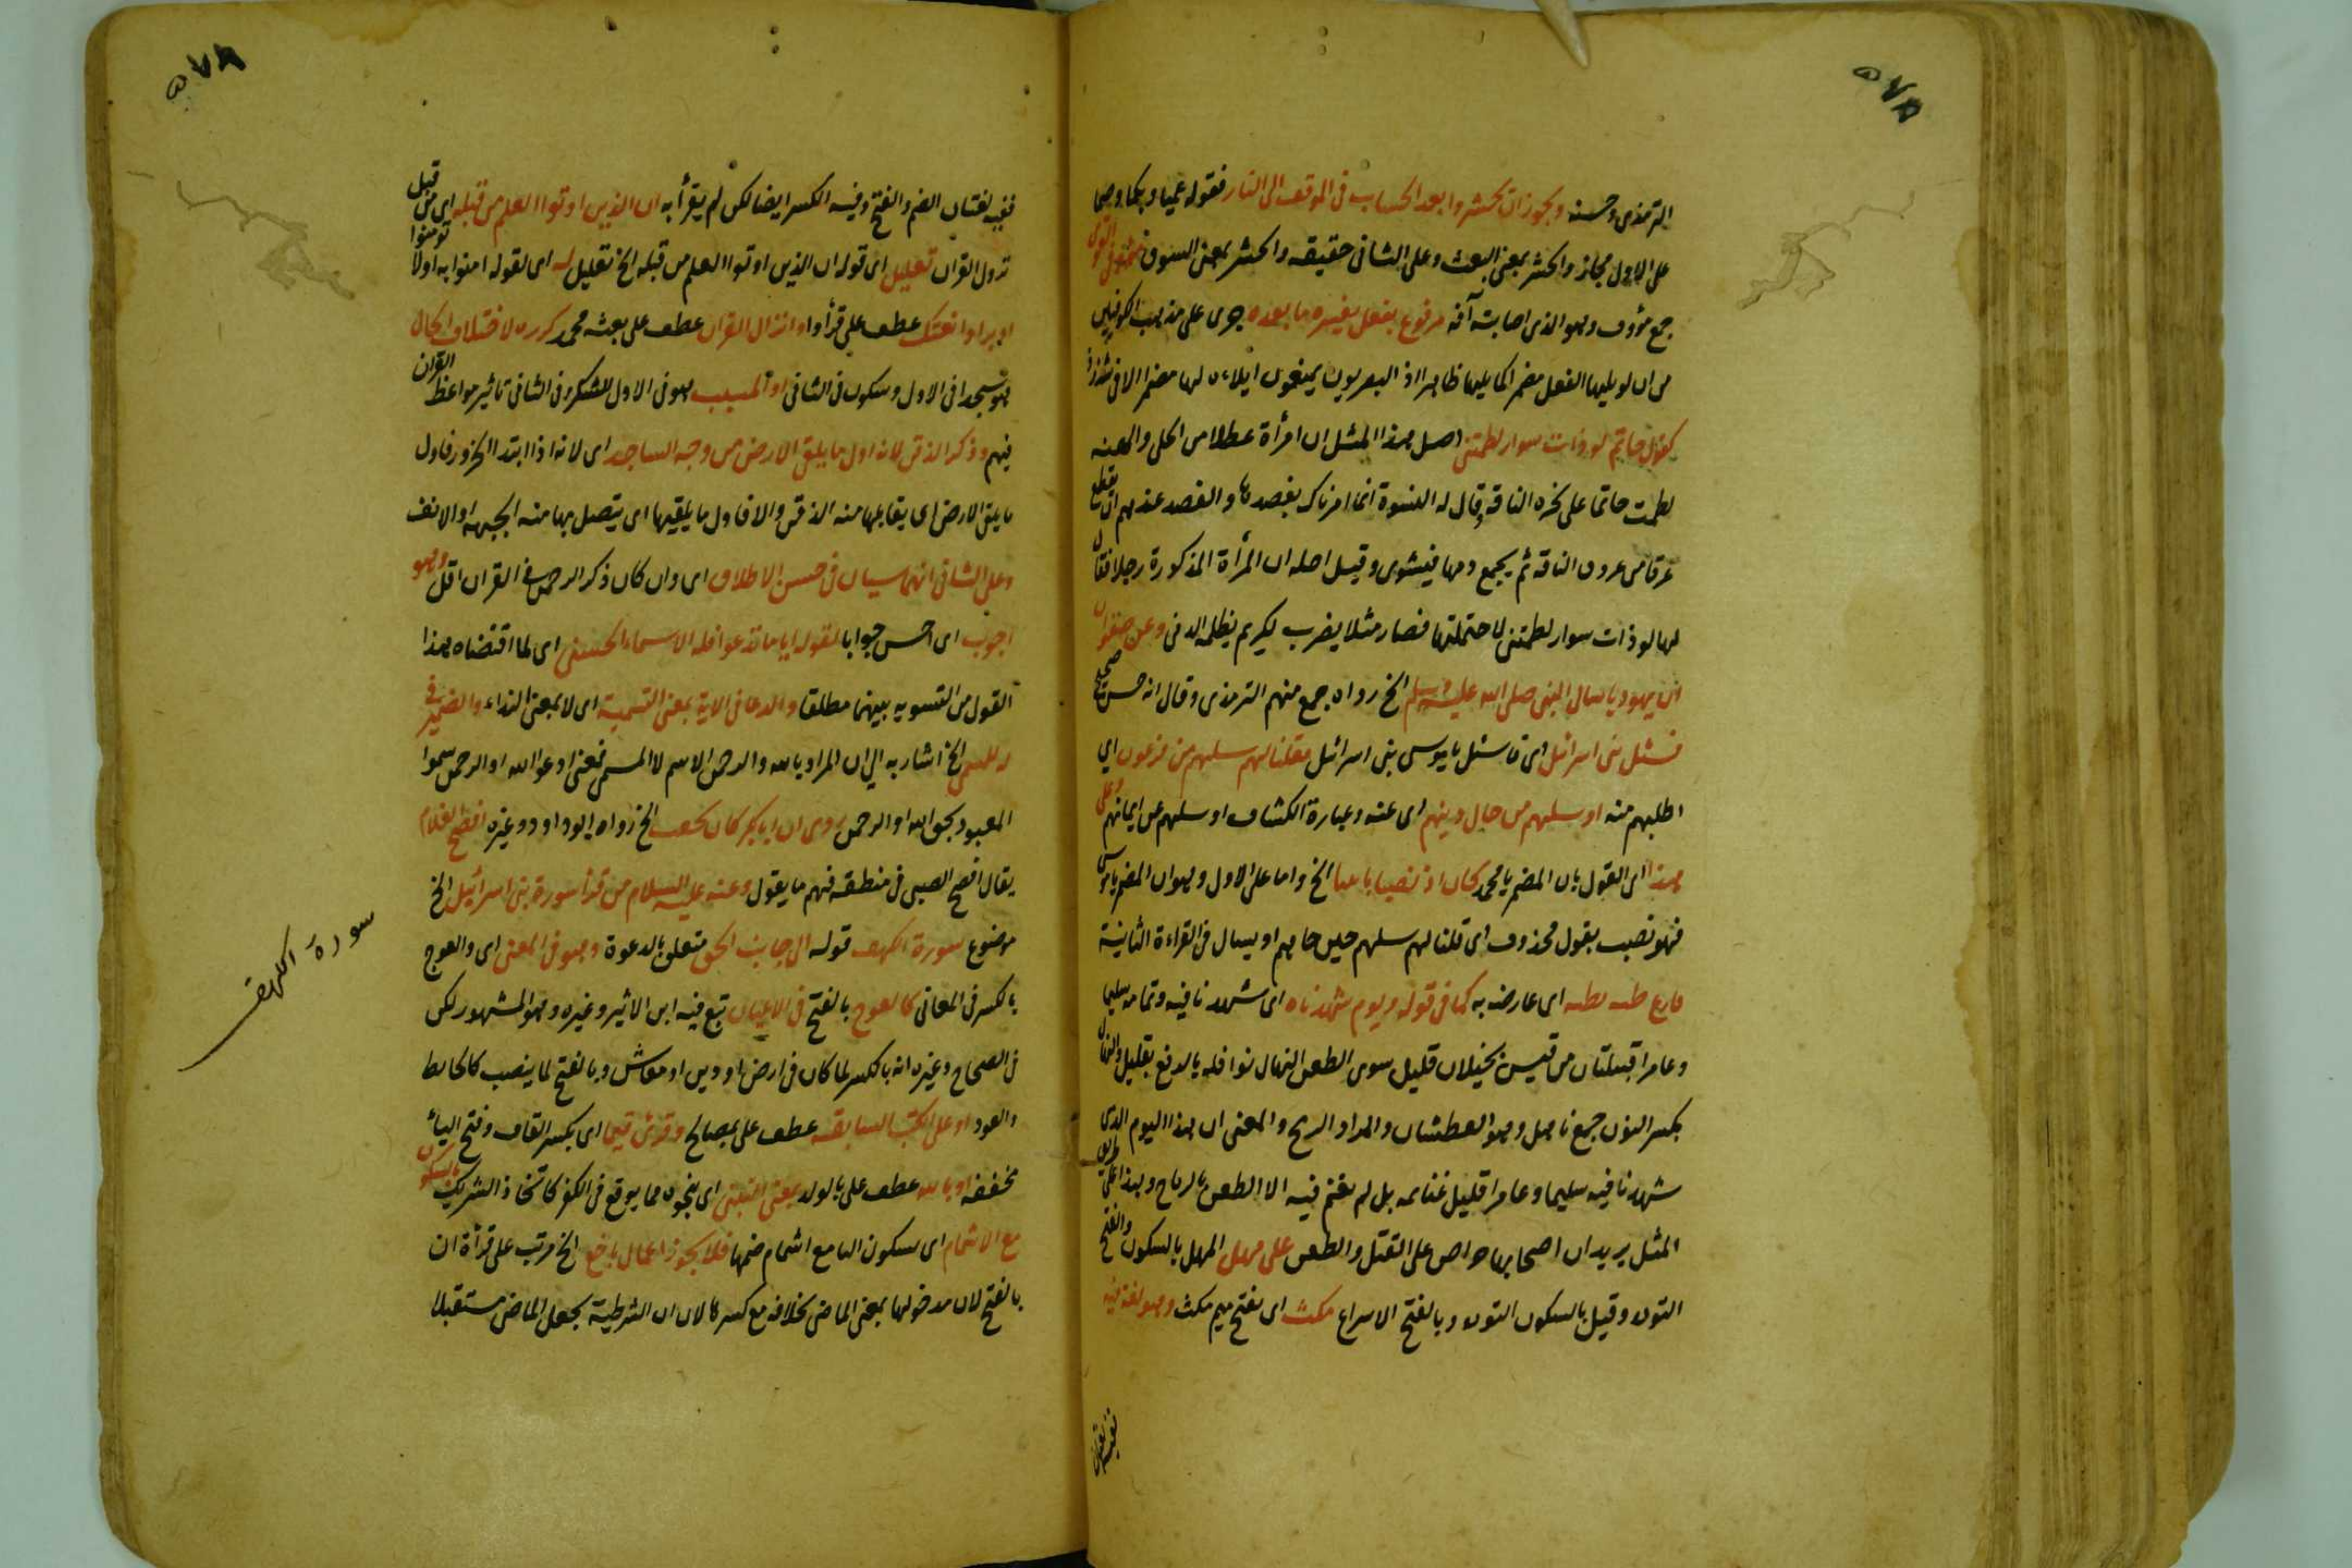 ٥٧٨
الترمذى وحسنه ويجوز ان يحشروا بعد الحساب فى الموقف الى النار فقوله عميا وبكما وصما
على الاول مجاز والحشر بمعنى البعث وعلى الثانى حقيقة والحشر بمعنى السوق
جمع مؤوف وهو الذى اصابته آفة مرفوع بفعل يفسره ما بعده جرى على مذهب الكوفيين
من ان لو يليها الفعل مضمرا كما يليها ظاهرا اذ البصريون يمنعون ايلاءه لها مضمرا الا فى شذوذ
كقول حاتم لو ذات سوار لطمتنى اصل هذا المثل ان امرأة عطلا من الحلى والهيئة
لطمت حاتما على نحره الناقة وقال له النسوة انما امرناك بفصدها والفصد عندهم ان يقطع
عرقا من عروق الناقة ثم يجمع دمها فيشوى وقيل اصله ان المرأة المذكورة رجلا فقال
لها لو ذات سوار لطمتنى لاحتملتها فصار مثلا يضرب لكريم يظلمه الدنى وعن صفوان
ان يهوديا سال النبى صلى الله عليه وسلم الخ رواه جمع منهم الترمذى وقال انه حسن صحيح
فسئل بنى اسرائيل اى فاسئل يا موسى بنى اسرائيل فقلنا لهم سلهم من فرعون اى
اطلبهم منه او سلهم من حال دينهم اى عنه وعبارة الكشاف او سلهم عن ايمانهم وعلى
هذا اى القول بان المضمر يا محمد كان اذ نصبا باتينا الخ واما على الاول وهو ان المضمر يا موسى
فهو نصب بقول محذوف اى قلنا لهم سلهم حين جاءهم او بسال فى القراءة الثانية
اى عارضه به كما فى قوله ويوم شهدناه اى شهدنا فيه وتمامه سليما
وعامرا قبيلتان من قيس بن غيلان قليل سوى الطعن النهال نوافله بالرفع بقليل والنهال
بكسر النون جمع ناهل وهو العطشان والمراد الريح والمعنى ان هذا اليوم الذى
شهدنا فيه سليما وعامرا قليل غنائمه بل لم نغنم فيه الا الطعن بالرماح وهذا على طريق
المثل يريد ان اصحابها حراص على القتل والطعن على مهل المهل بالسكون والفتح
التوده وقيل بالسكون التوده وبالفتح الاسراع مكث اى بفتح ميم مكث وهو لغة فيه
٥٧٨
ففيه لغتان الضم والفتح وفيه الكسر ايضا لكن لم يقرأ به ان الذين اوتوا العلم من قبله اى من قبل
نزول القران تعليل اى قوله ان الذين اوتوا العلم من قبله الخ تعليل له اى لقوله امنوا به اولا تومنوا
عطف على قرأ او انزال القران عطف على بعثه محمد كرره لاختلاف الحال
هو سجدا فى الاول وسكون فى الثانى او السبب هو فى الاول للشكر وفى الثانى تاثير مواعظ القران
فيهم وذكر الذقن لانه اول ما يلقى الارض من وجه الساجد اى لانه اذا ابتدا الخرور فاول
ما يلقى الارض اى يقابلها منه الذقن والا فاول ما يلقيها اى يتصل بها منه الجبهة او الانف
وعلى الثانى انهما سيان فى حسن الاطلاق اى وان كان ذكر الرحمن فى القران اقل وهو
اجوب اى احسن جوابا لقوله ايا ما تدعوا فله الاسماء الحسنى اى لما اقتضاه هذا
القول من التسويه بينهما مطلقا والدعا فى الاية بمعنى التسمية اى لا بمعنى النداء والضمير فى
له للمسمى الخ اشار به الى ان المراد بالله والرحمن الاسم لا المسمى فمعنى ادعوا الله او الرحمن سموا
المعبود بحق الله او الرحمن روى ان ابا بكر كان يخفت الخ رواه ابو داود وغيره افصح الغلام
يقال افصح الصبى فى منطقه فهم ما يقول وعنه عليه السلام من قرأ سورة بنى اسرائيل الخ
موضوع سورة الكهف قوله الى جانب الحق متعلق بالدعوة وهو فى المعنى اى والعوج
بالكسر فى المعانى كالعوج بالفتح فى الاعيان تبع فيه ابن الاثير وغيره وهو المشهور لكن
فى الصحاح وغيره انه بالكسر لما كان فى ارض او دين او معاش وبالفتح لما ينصب كالحايط
والعود او على الكتب السابقة عطف على بمصالح وقرئ قيما اى بكسر القاف وفتح الياء
مخففه او بالله عطف على بالولد بمعنى التبنى اى بنحوه مما يوقع فى الكفر كاتخاذ الشريك بالسكون
مع الاشمام اى بسكون الباء مع اشمام ضمها فلا يجوز اعمال باخع الخ مرتب على قرأة ان
بالفتح لان مدخولها بمعنى الماضى بخلافه مع كسرها لان ان الشرطية يجعل الماضى مستقبلا
سورة الكهف